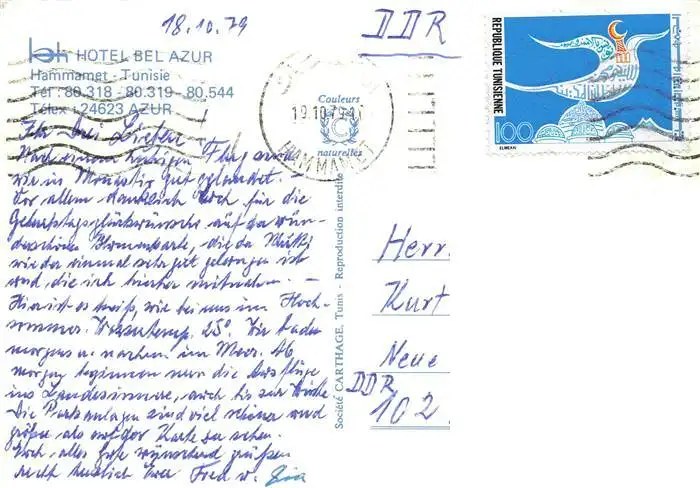 18.10.79
DDR
HOTEL BEL AZUR
Hammamet - Tunisie
Tél : 80.318 - 80.319 - 80.544
Télex : 24623 AZUR
Ihr bei Lieben!
Nach einem ruhigen Flug sind
wir in Monastir gut gelandet.
Vor allem danke ich Euch für die
Geburtstagsglückwünsche auf der wun-
derschönen Blumenkarte, die der Mutti
wieder einmal sehr gut gelungen ist
und die ich hierher mitnahm. —
Hier ist es heiß, wie bei uns im Hoch-
sommer. Wassertemp. 25°. Wir baden
morgens u. nachm. im Meer. Ab
morgen beginnen nun die Ausflüge
ins Landesinnere, auch bis zur Wüste.
Die Parkanlagen sind viel schöner und
größer als auf der Karte zu sehen.
Euch alles Gute wünschend grüßen
recht herzlich Euer Fred u.
Couleurs
naturelles
19.10.79
HAMMAMET
Société CARTHAGE, Tunis - Reproduction interdite
REPUBLIQUE TUNISIENNE
100
ELMEKKI
Herrn
Kurt
Neue
DDR
102